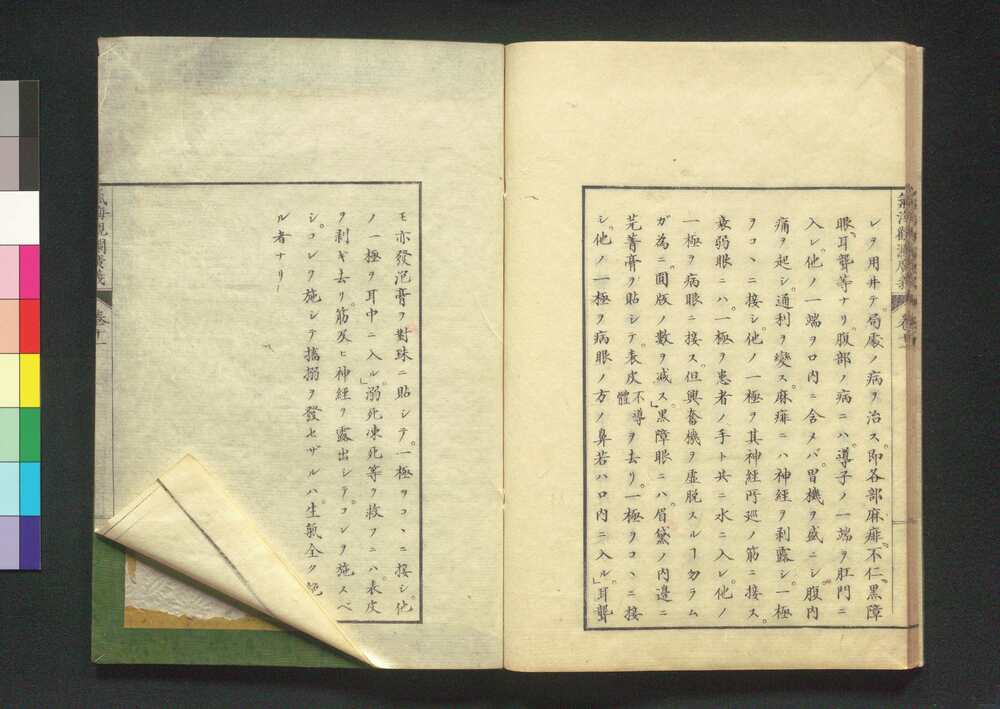 レヲ用井テ局處ノ病ヲ治ス。即各部麻痱、不仁、黒障
眼、耳聾等ナリ。腹部ノ病ニハ、導子ノ一端ヲ肛門ニ
入レ。他ノ一端ヲ口内ニ含メバ。胃機ヲ盛ニシ。腹内
痛ヲ起シ。通利ヲ變ス。麻痱ニハ神経ヲ剥露シ。一極
ヲコヽニ接シ。他ノ一極ヲ其神経所廵ノ筋ニ接ス。
衰弱眼ニハ。一極ヲ患者ノ手ト共ニ水ニ入レ。他ノ
一極ヲ病眼ニ接ス。但興奮機ヲ虚脱スルヿ勿ラム
ガ為ニ。圓版ノ數ヲ減ス」黒障眼ニハ。眉黛ノ内邊ニ
芫菁膏ヲ貼シテ。表皮不導體ヲ去リ。一極ヲコヽニ接
シ。他ノ一極ヲ病眼ノ方ノ鼻若ハ口内ニ入ル」耳聾
モ亦發泡膏ヲ對珠ニ貼シテ。一極ヲコヽニ接シ。他
ノ一極ヲ耳中ニ入ル」溺死凍死等ヲ救フニハ。表皮
ヲ剥ギ去リ。筋及ヒ神経ヲ露出シテ。コレヲ施スベ
シ。コレヲ施シテ搐搦ヲ發セザルハ。生氣全ク
ル者ナリ